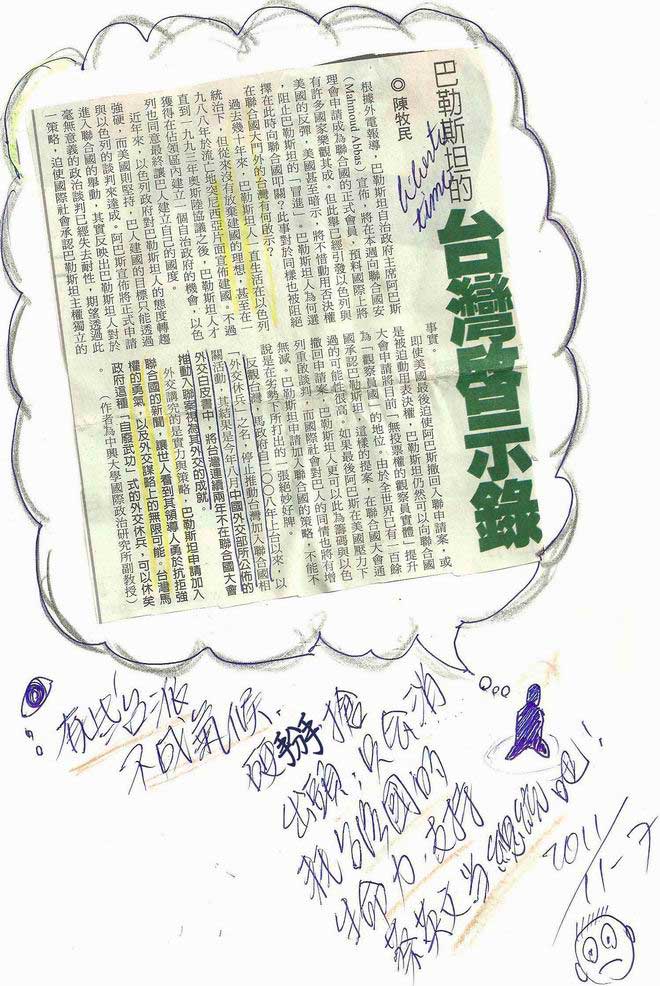 巴勒斯坦的
台灣啟示錄
◎陳牧民
time
根據外電報導,巴勒斯坦自治政府主席阿巴斯
(Mahmoud Abbas)宣佈,將在本週向聯合國安
理會申請成為聯合國的正式會員,預料國際上將
有許多國家樂觀其成。但此舉已經引發以色列與
美國的反彈,美國甚至暗示,將不惜動用否決權
,阻止巴勒斯坦的「冒進」。巴勒斯坦人為何選
擇在此時向聯合國叩關?此事對於同樣也被阻絕
在聯合國大門外的台灣有何啟示?
過去幾十年來,巴勒斯坦人一直生活在以色列
統治下,但從來沒有放棄建國的理想,甚至在一
九八八年於流亡地突尼西亞片面宣佈建國。不過
直到一九九三年奧斯陸協議之後,巴勒斯坦人才
獲得在佔領區內建立一個自治政府的機會,以色
列也同意最終讓巴人建立自己的國度。
近年來,以色列政府對巴勒斯坦人的態度轉趨
強硬,而美國則堅持,巴人建國的目標只能透過
與以色列的談判來達成。阿巴斯宣佈將正式申請
進入聯合國的舉動,其實反映出巴勒斯坦人對於
毫無意義的政治談判已經失去耐性,期望透過此
一策略,迫使國際社會承認巴勒斯坦主權獨立的
事實。
即使美國最後迫使阿巴斯撤回入聯申請案,或
是被迫動用表決權,巴勒斯坦仍然可以向聯合國
大會申請將目前「無投票權的觀察員實體」提升
為「觀察員國」的地位。由於全世界已有一百餘
國承認巴勒斯坦,這樣的提案,在聯合國大會通
過的可能性很高。如果最後阿巴斯在美國壓力下
撤回申請案,巴勒斯坦人更可以此為籌碼與以色
列重啟談判,而國際社會對巴人的同情也將有增
無減。巴勒斯坦申請加入聯合國的策略,不能不
說是在劣勢下所打出的一張絕妙好牌。
反觀台灣,馬政府自二○○八年上台以來,以
「外交休兵」之名,停止推動台灣加入聯合國相
關活動,其結果是今年八月中國外交部所公佈的
外交白皮書中,將台灣連續兩年不在聯合國大會
推動入聯案視為其外交的成就。
外交講究的是實力與策略,巴勒斯坦申請加入
聯合國的新聞,讓世人看到其領導人勇於抗拒強
權的勇氣,以及外交謀略上的無限可能。台灣馬
政府這種「自廢武功」式的外交休兵,可以休矣
。(作者為中興大學國際政治研究所副教授)
有些台派
不成氣候.
硬掰搶
出頭;只會消
耗台灣國的
生命力.支持
蔡英文当總統吧!
2011
11-7